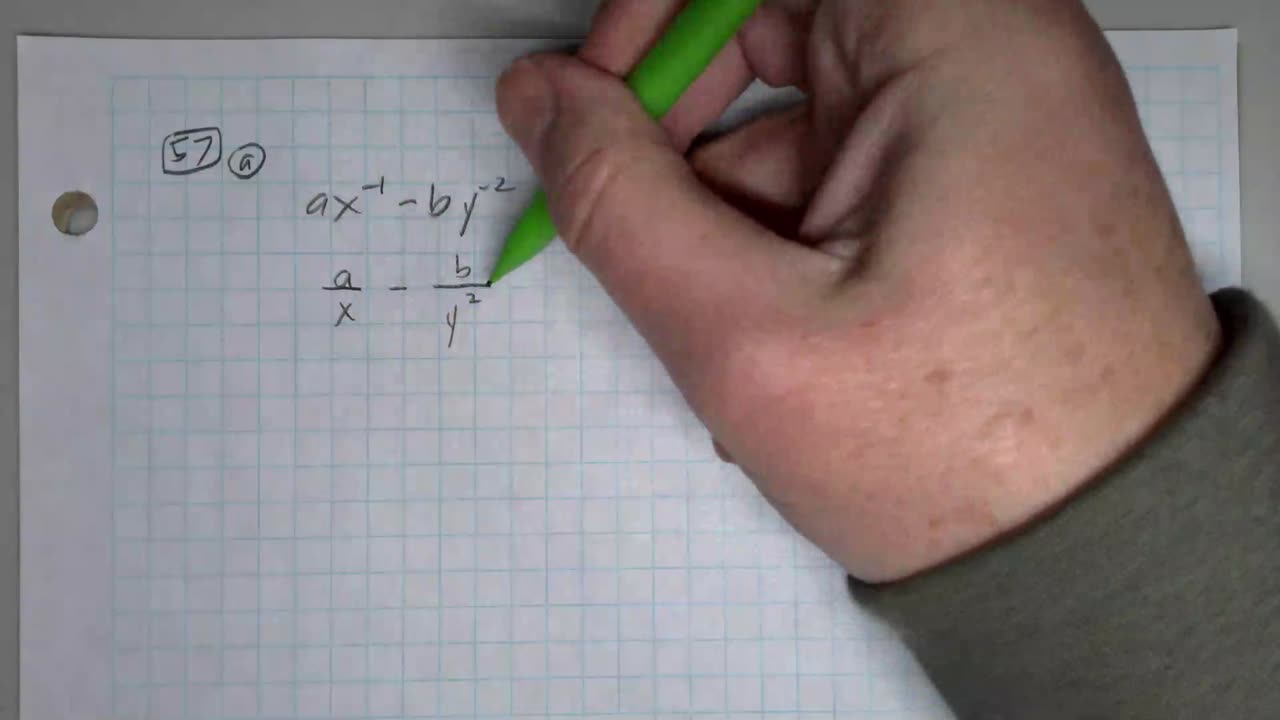 57 a
ax⁻¹ - by⁻²
a/x - b/y²